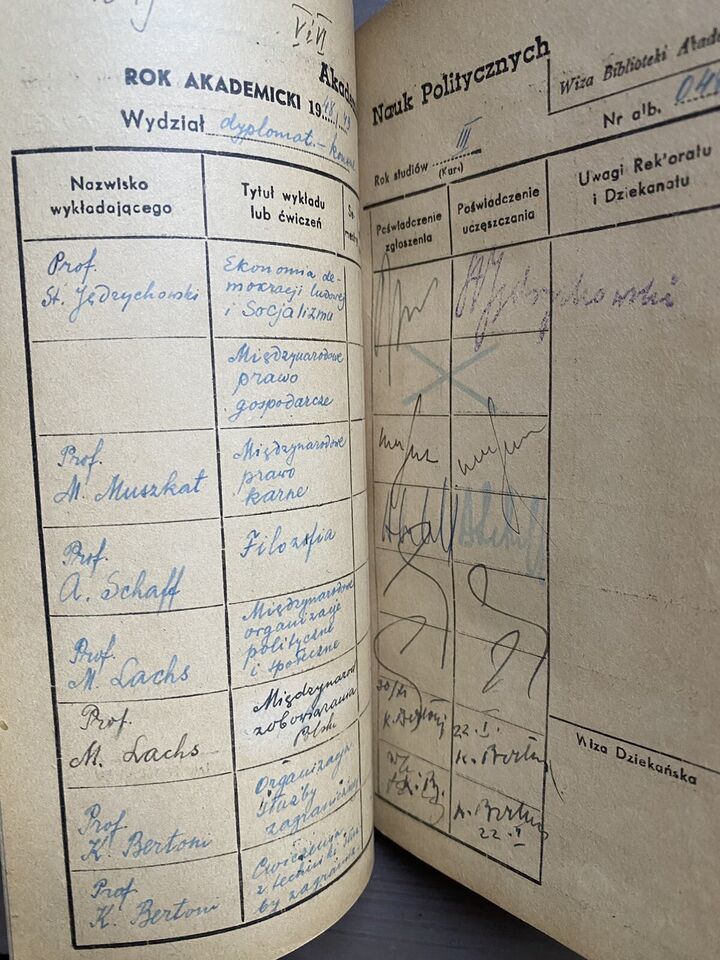 VIVI
Akadem
ROK AKADEMICKI 1948/49
Wydział dyplomat.-konsul
Nazwisko
wykładającego
Tytuł wykładu
lub ćwiczeń
Prof.
St. Jędrychowski
Ekonomia de-
mokracji ludowej
i Socjalizmu
Międzynarodowe
prawo
gospodarcze
Prof.
M. Muszkat
Międzynarodowe
prawo
karne
Prof.
A. Schaff
Filozofia
Prof.
M. Lachs
Międzynarodowe
organizacje
polityczne
i społeczne
Prof.
M. Lachs
Międzynarod
zobowiązania
Polski
Prof.
K. Bertoni
Organizacja
służby
zagranicznej
Prof.
K. Bertoni
Ćwiczenia
z techniki służ
by zagranic
Nauk Politycznych
Wiza Biblioteki Akade
Nr alb.
Rok studiów III
(Kurs)
Poświadczenie
zgłoszenia
Poświadczenie
uczęszczania
Uwagi Rek'oratu
i Dziekanatu
Jędrychowski
K. Bertoni
22.I.
K. Bertoni
K. B.
K. Bertoni
22.I
Wiza Dziekańska